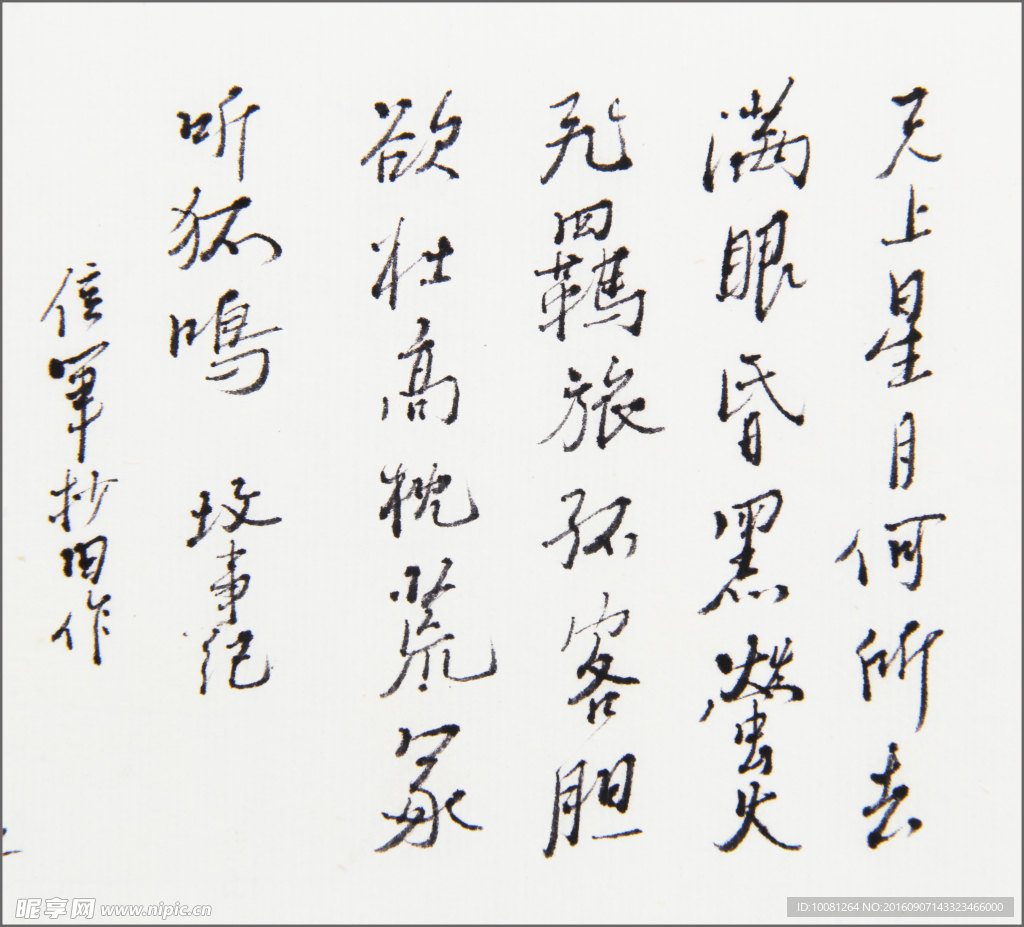 天上星月何所去
满眼昏黑螢火
飞羈旅孤客胆
欲壮高枕荒冢
听狐鸣 故事纪
信军抄旧作
昵享网 www.nipic.cn
ID:10081264 NO:20160907143323466000